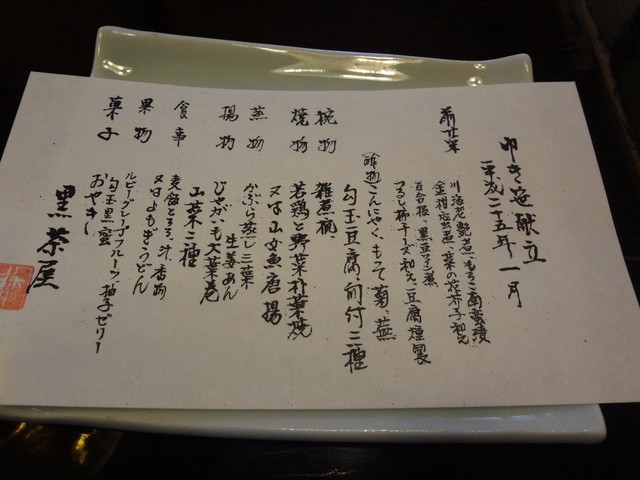 叩き笹献立
平成二十五年一月
前菜
川海老艶煮、もろこ南蛮漬
金柑密煮、菜の花芥子和え
百合根、黒豆ワイン煮
つるし柿チーズ和え、豆腐燻製
こんにゃく、もって菊、蕪
勾玉豆腐、前付三種
椀物
雑煮椀
焼物
若鶏と野菜朴葉焼
又は山女魚唐揚
蒸物
かぶら蒸し三葉
生姜あん
揚物
じゃがいも大葉巻
山菜二種
食事
麦飯とろろ、汁、香物
又はよもぎうどん
果物
ルビーグレープフルーツ・柚子ゼリー
菓子
勾玉黒蜜
おやき
黒茶屋